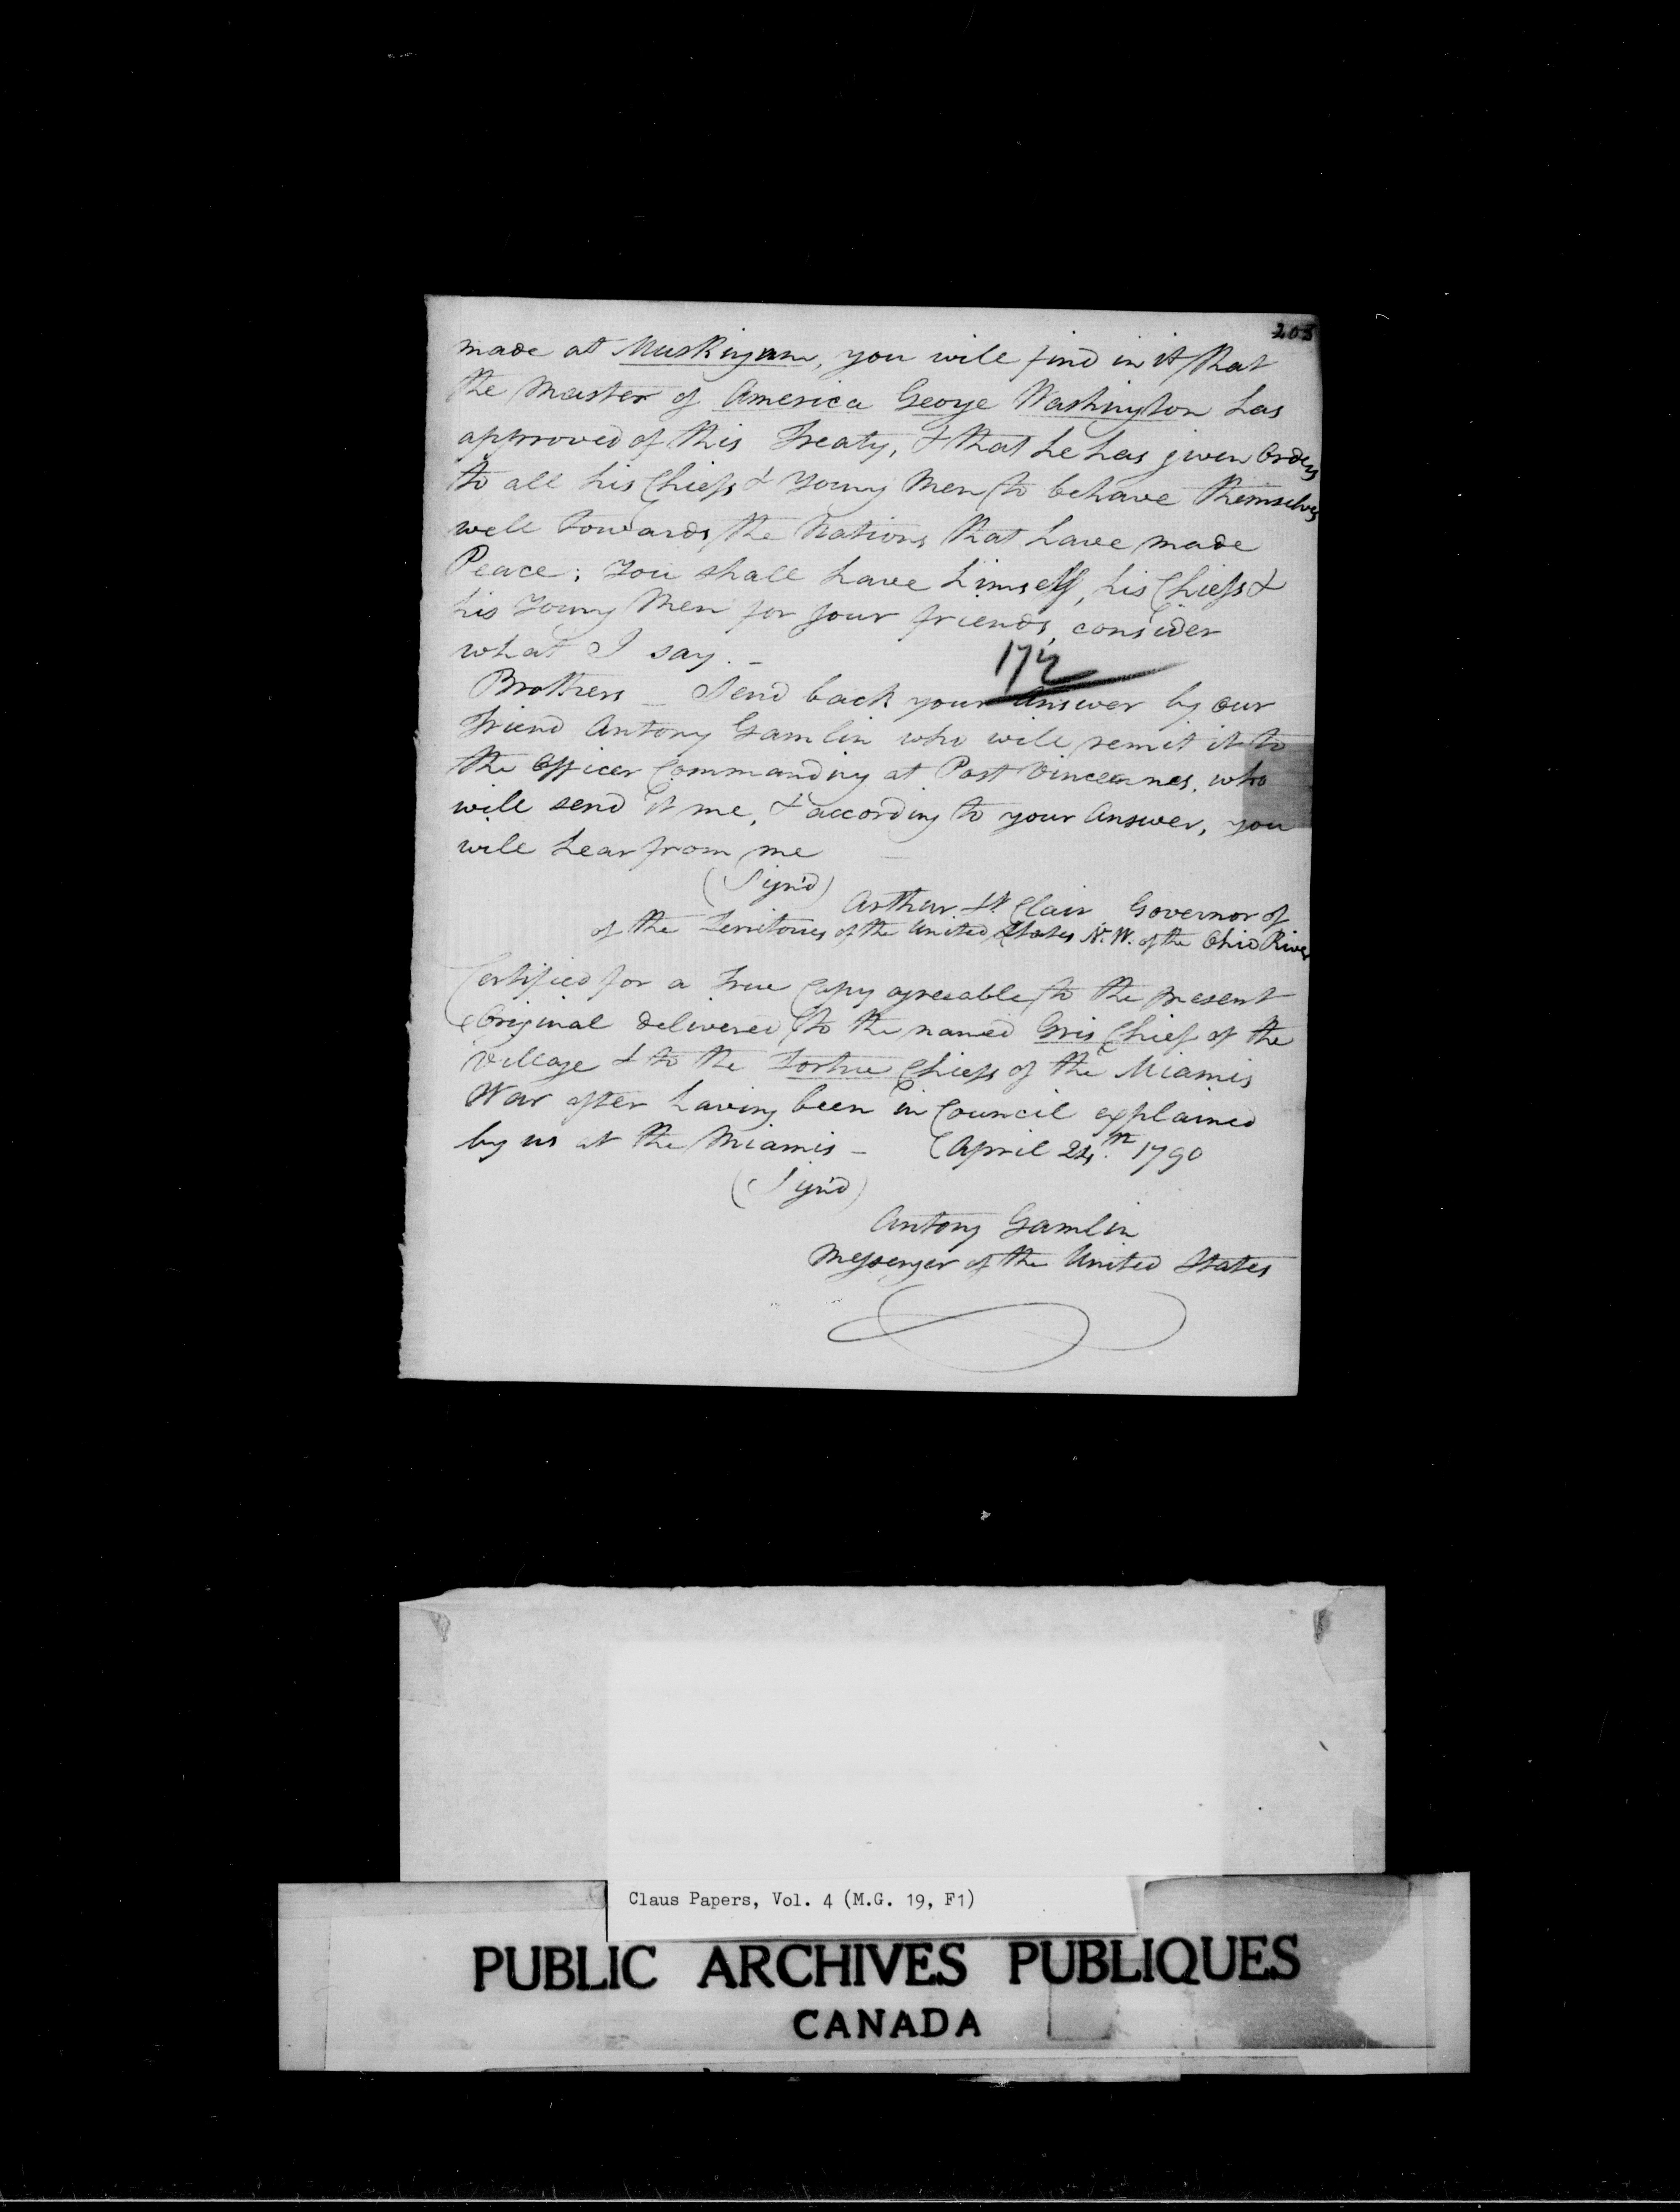 203
made at Muskingum, you will find in it that
the Master of America George Washington has
approved of this Treaty, & that he has given Orders
to all his Chiefs & Young Men to behave themselves
well towards the Nations that have made
Peace; You shall have himself, his Chiefs &
his Young Men for your friends, consider
what I say. –
172
Brothers – Send back your Answer by our
Friend Antony Gamlin who will remit it to
the Officer Commanding at Post Vincennes, who
will send it me, & according to your Answer, you
will hear from me –
(Sign'd)
Arthur St. Clair Governor of
of the Territories of the United States N.W. of the Ohio River
Certified for a True Copy agreable to the present
Original delivered to the named Gris Chief of the
Village & to the Tortue Chiefs of the Miamis
War after having been in Council explained
by us at the Miamis – April 24th 1790
(Sign'd)
Antony Gamlin
Messenger of the United States
Claus Papers, Vol. 4 (M.G. 19, F1)
PUBLIC ARCHIVES PUBLIQUES
CANADA